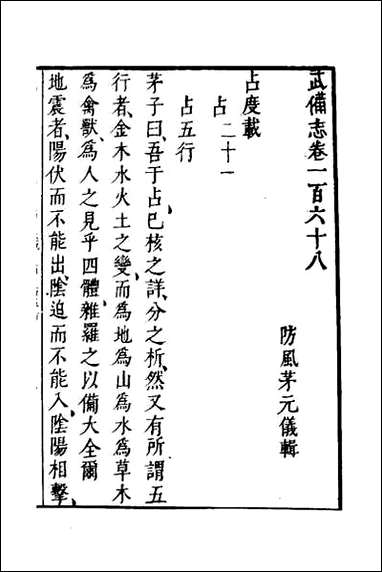 武備志卷一百六十八
防風茅元儀輯
占度載
占二十一
占五行
茅子曰、吾于占已核之詳、分之析、然又有所謂五
行者、金木水火土之變、而爲地爲山爲水爲草木
爲禽獸、爲人之見乎四體、雜羅之以備大全爾
地震者、陽伏而不能出、陰迫而不能入、陰陽相擊、